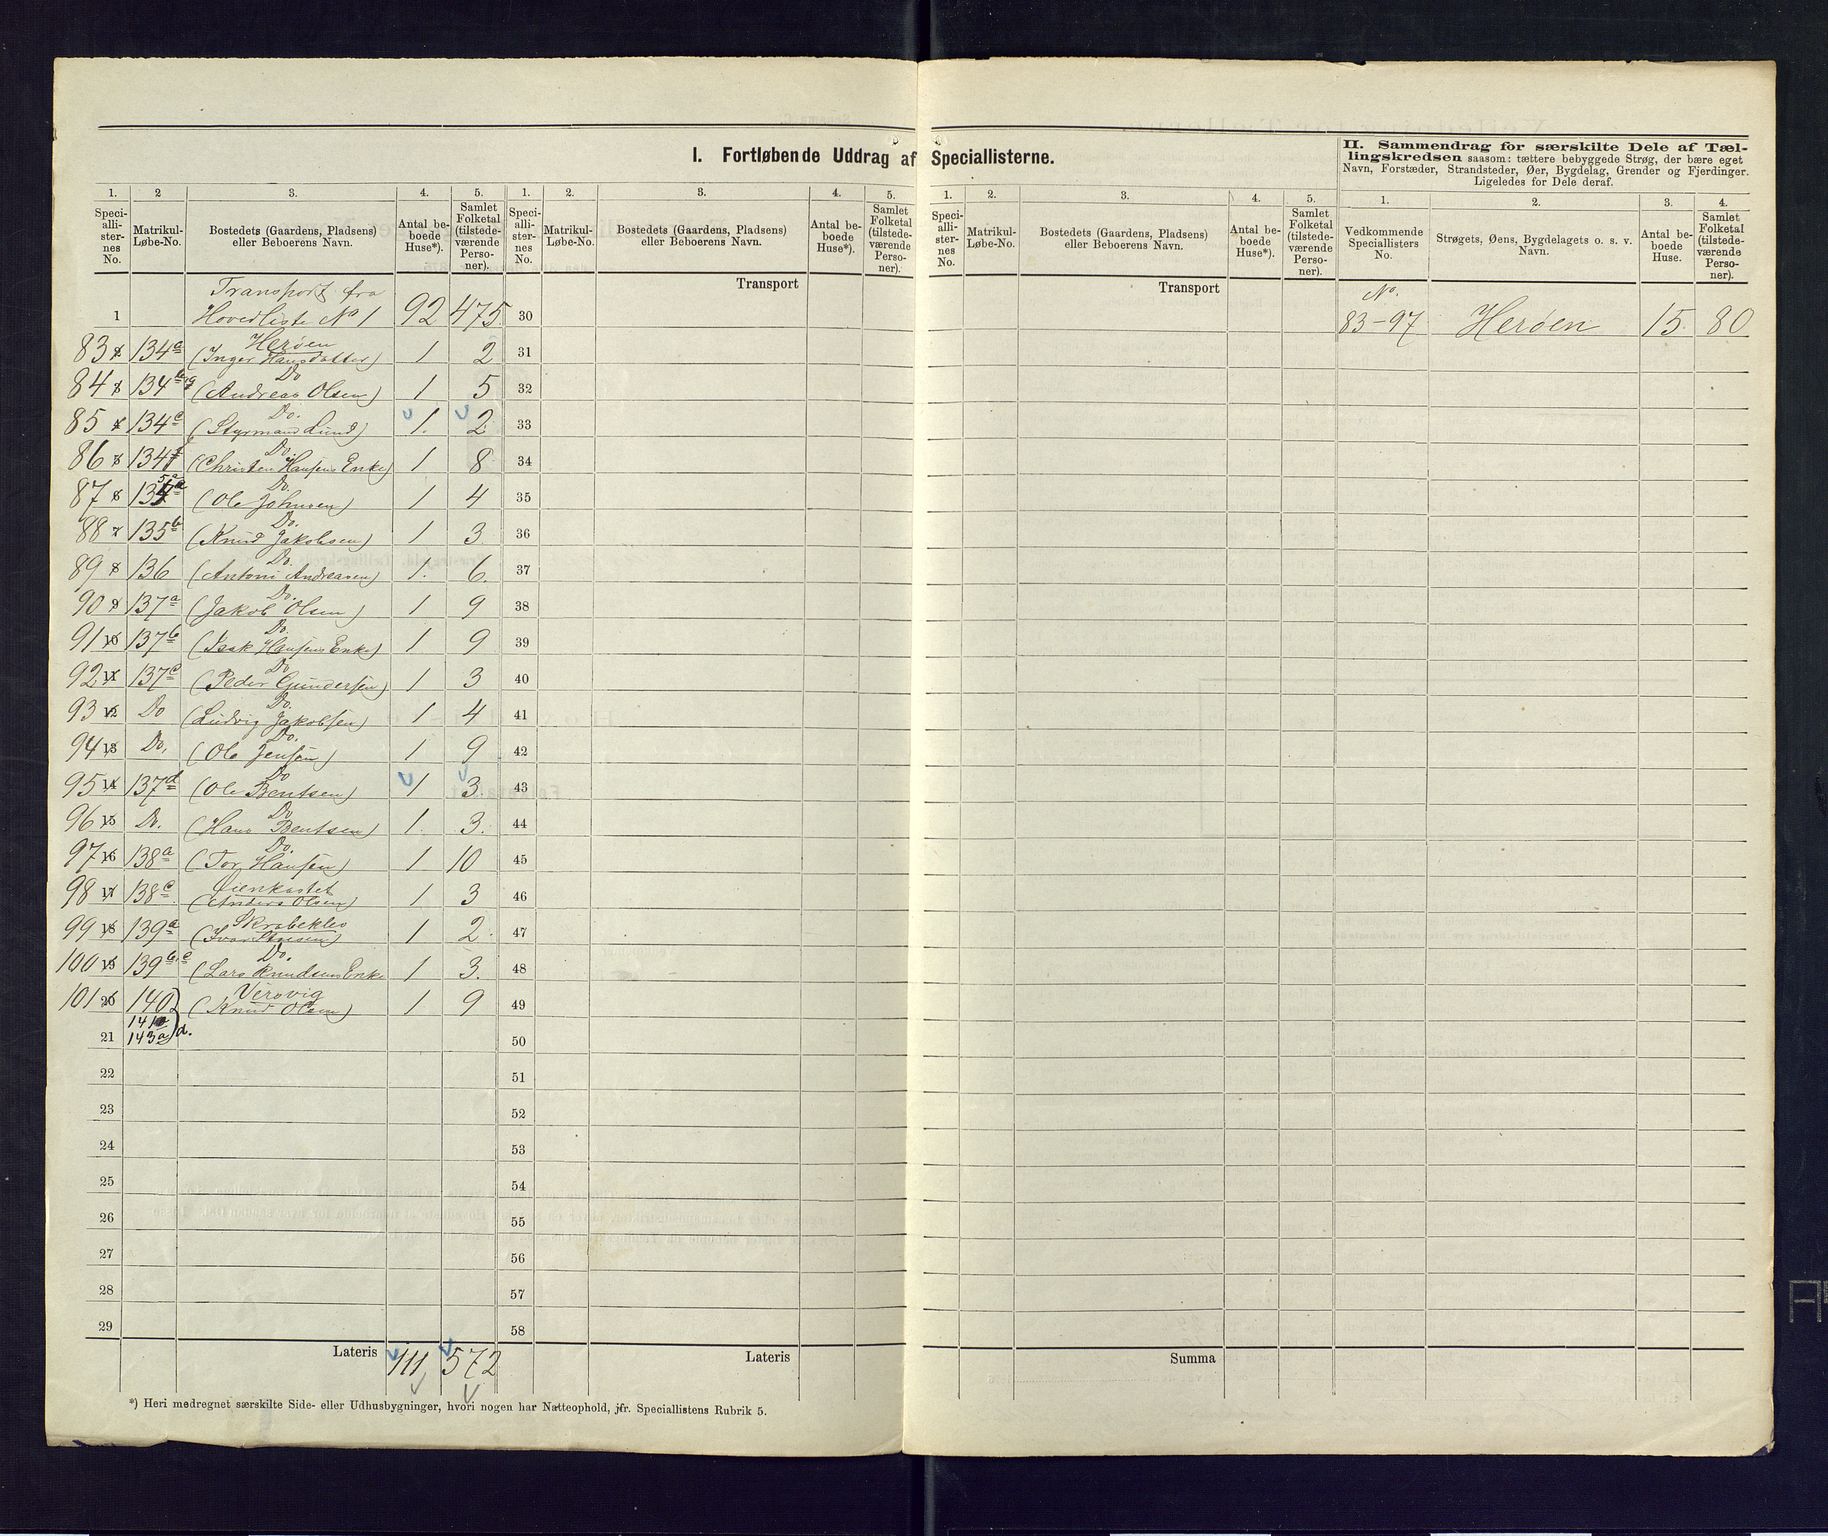 I. Fortløbende Uddrag af Speciallisterne.
II. Sammendrag for særskilte Dele af Tæl-
lingskredsen saasom: tættere bebyggede Strøg, der bære eget
Navn, Forstæder, Strandsteder, Øer, Bygdelag, Grender og Fjerdinger.
Ligeledes for Dele deraf.
1. 2 3. 4. 5. 1. 2. 3. 4. 5. 1. 2. 3. 4. 5. 1. 2. 3. 4.
Speci-
alli-
ster-
nes
No.
Matrikul-
Løbe-No.
Bostedets (Gaardens, Pladsens)
eller Beboerens Navn.
Antal be-
boede
Huse*).
Samlet
Folketal
(tilstede-
værende
Perso-
ner).
Speci-
alli-
ster-
nes
No.
Matrikul-
Løbe-No.
Bostedets (Gaardens, Pladsens)
eller Beboerens Navn.
Antal be-
boede
Huse*).
Samlet
Folketal
(tilstede-
værende
Perso-
ner).
Speci-
alli-
ster-
nes
No.
Matrikul-
Løbe-No.
Bostedets (Gaardens, Pladsens)
eller Beboerens Navn.
Antal be-
boede
Huse*).
Samlet
Folketal
(tilstede-
værende
Perso-
ner).
Vedkommende
Speciallisters
No.
Strøgets, Øens, Bygdelagets o. s. v.
Navn.
Antal be-
boede
Huse.
Samlet
Folketal
(tilstede-
værende
Perso-
ner).
Transport fra
1 Hovedliste No 1 92 475
Herøen
83 134a (Inger Hansdatter) 1 2
Do
84 134 (Andreas Olsen) 1 5
Do.
85 134c (Styrmand Lund) 1. 2
Do.
86 134f (Christen Hansens Enke) 1 8
Do.
87 135a (Ole Johnsen) 1 4
Do.
88 135b (Knud Jakobsen) 1 3
Do.
89 136 (Antoni Andreasen) 1. 6.
Do.
90 137a (Jakob Olsen) 1 9
Do.
91 137b (Isak Hansens Enke) 1 9
Do
92 137c (Peder Gundersen) 1 3
Do.
93 Do (Ludvig Jakobsen) 1 4
Do.
94 Do. (Ole Jensen) 1 9
Do
95 137d (Ole Bentsen) 1 3.
Do
96 Do. (Hans Bentsen) 1. 3.
Do.
97 138a (Tor Hansen) 1 10
Øienkastet
98 138c (Anders Olsen) 1 3
Skrabeklev
99 139a (Ivar) 1 2.
Do.
100 139b,c (Lars Knudsens Enke 1 3.
Verøvig
101 140 (Knud Olsen) 1 9
141
21 143a d.
22
23
24
25
26
27
28
29
Lateris 111 572
Transport
30
31
32
33
34
35
36
37
38
39
40
41
42
43
44
45
46
47
48
49
50
51
52
53
54
55
56
57
58
Lateris
Transport
Summa
No.
83-97 Herøen 15. 80
*) Heri medregnet særskilte Side- eller Udhusbygninger, hvori nogen har Natteophold, jfr. Speciallistens Rubrik 5.